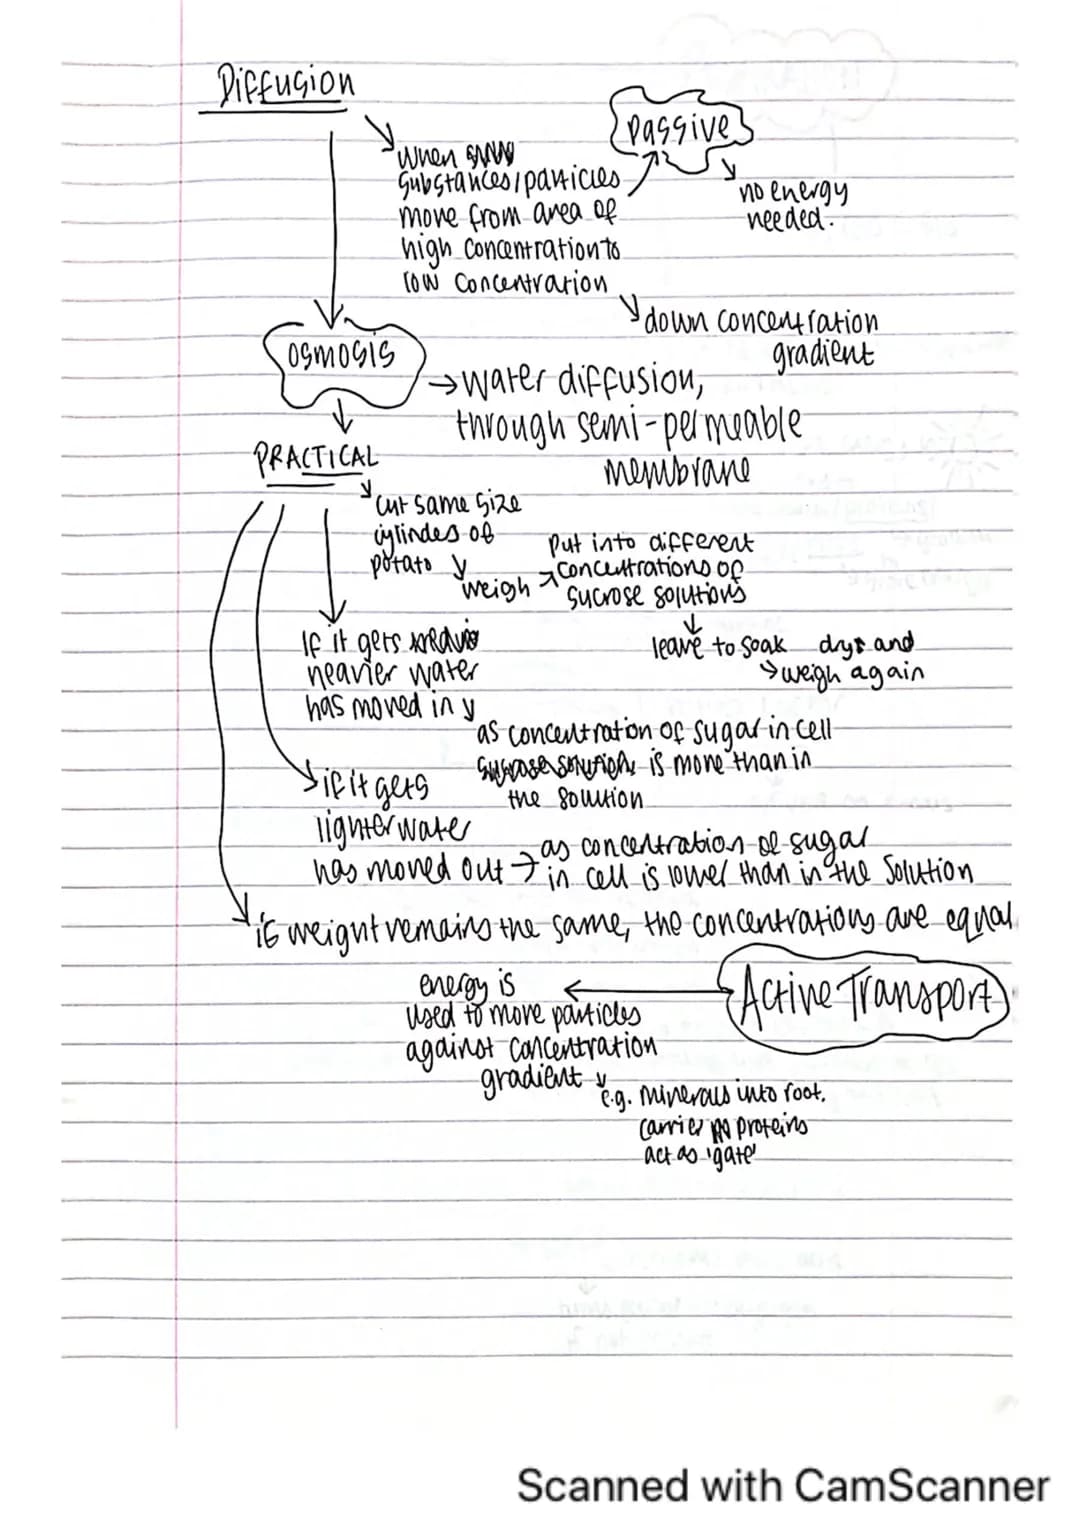 Diffusion
When
substances/particles
move from area of
high concentration to
low concentration
passive
no energy
needed.
down concentration
gradient
osmosis
→ water diffusion,
through semi-permeable
membrane
PRACTICAL
cut same size
cylindes of
potato
weigh
put into different
concentrations of
sucrose solutions
leave to soak dry and
weigh again
If it gets
heavier water
has moved in
as concentration of sugar in cell
is more than in
the solution
if it gets
lighter water
has moved out →
as concentration of sugar
in cell is lower than in the solution
if weight remains the same, the concentrations are equal.
Active Transport
energy is
used to move particles
against concentration
gradient
e.g. minerals into root.
carrier proteins
act as 'gate'
Scanned with CamScanner